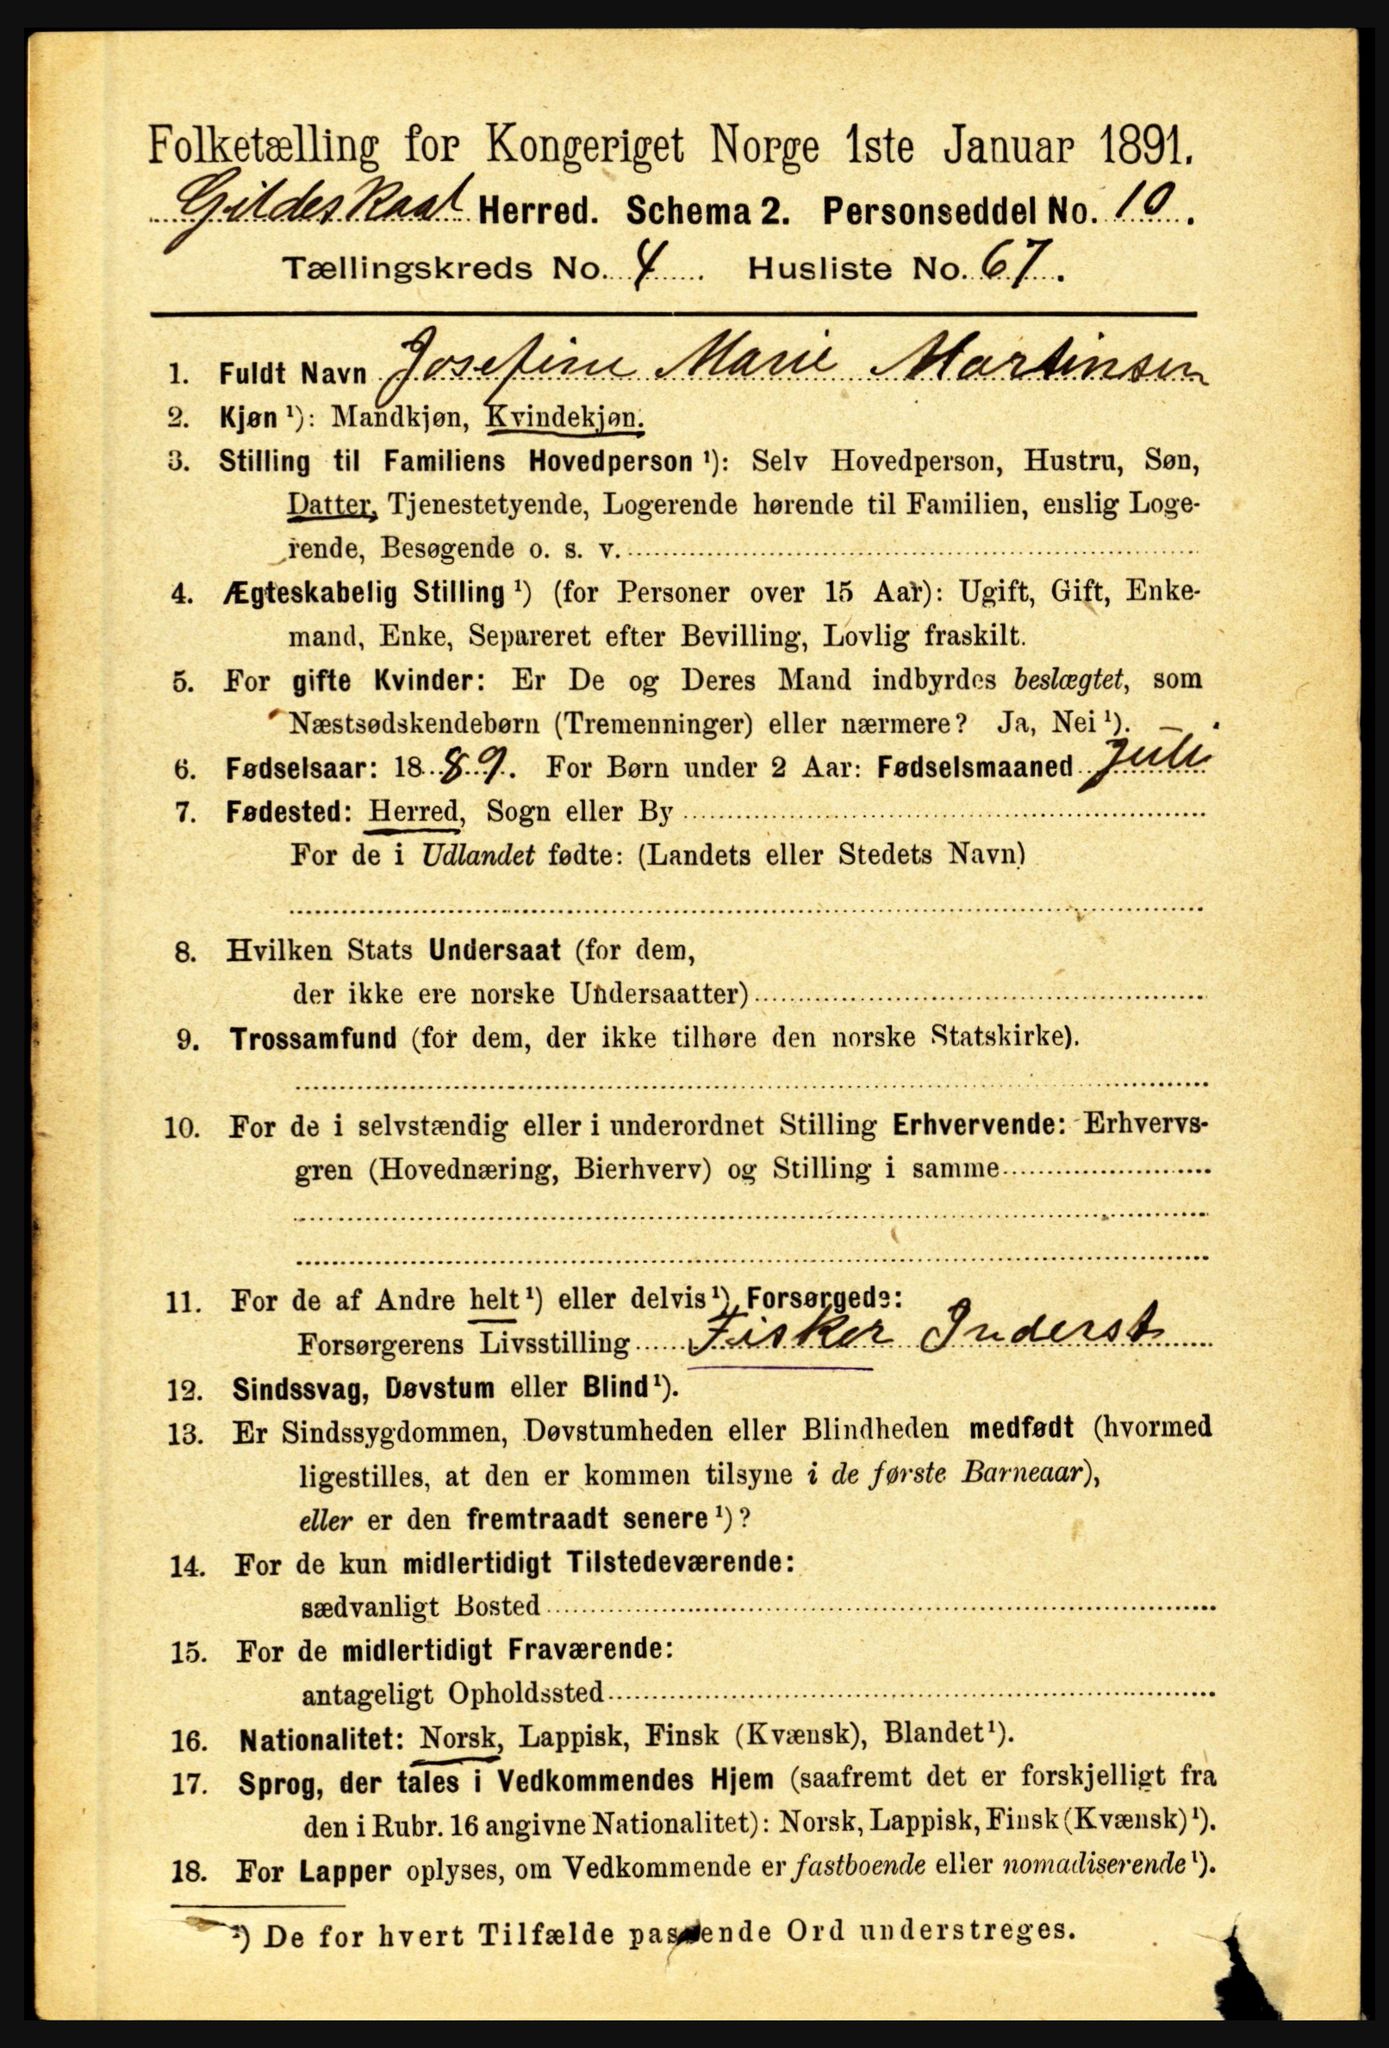 Folketælling for Kongeriget Norge 1ste Januar 1891.
Gildeskaal Herred. Schema 2. Personseddel No. 10.
Tællingskreds No. 4 Husliste No. 67.
1. Fuldt Navn Josefine Marie Martinsen
2. Kjøn ¹): Mandkjøn, Kvindekjøn.
3. Stilling til Familiens Hovedperson ¹): Selv Hovedperson, Hustru, Søn,
Datter, Tjenestetyende, Logerende hørende til Familien, enslig Loge-
rende, Besøgende o. s. v.
4. Ægteskabelig Stilling ¹) (for Personer over 15 Aar): Ugift, Gift, Enke-
mand, Enke, Separeret efter Bevilling, Lovlig fraskilt.
5. For gifte Kvinder: Er De og Deres Mand indbyrdes beslægtet, som
Næstsødskendebørn (Tremenninger) eller nærmere? Ja, Nei ¹).
6. Fødselsaar: 1889. For Børn under 2 Aar: Fødselsmaaned Juli
7. Fødested: Herred, Sogn eller By
For de i Udlandet fødte: (Landets eller Stedets Navn)
8. Hvilken Stats Undersaat (for dem,
der ikke ere norske Undersaatter)
9. Trossamfund (for dem, der ikke tilhøre den norske Statskirke).
10. For de i selvstændig eller i underordnet Stilling Erhvervende: Erhvervs-
gren (Hovednæring, Bierhverv) og Stilling i samme
11. For de af Andre helt ¹) eller delvis ¹) Forsørgede:
Forsørgerens Livsstilling Fisker Inderst
12. Sindssvag, Døvstum eller Blind ¹).
13. Er Sindssygdommen, Døvstumheden eller Blindheden medfødt (hvormed
ligestilles, at den er kommen tilsyne i de første Barneaar),
eller er den fremtraadt senere ¹)?
14. For de kun midlertidigt Tilstedeværende:
sædvanligt Bosted
15. For de midlertidigt Fraværende:
antageligt Opholdssted
16. Nationalitet: Norsk, Lappisk, Finsk (Kvænsk), Blandet ¹).
17. Sprog, der tales i Vedkommendes Hjem (saafremt det er forskjelligt fra
den i Rubr. 16 angivne Nationalitet): Norsk, Lappisk, Finsk (Kvænsk) ¹).
18. For Lapper oplyses, om Vedkommende er fastboende eller nomadiserende ¹).
¹) De for hvert Tilfælde passende Ord understreges.